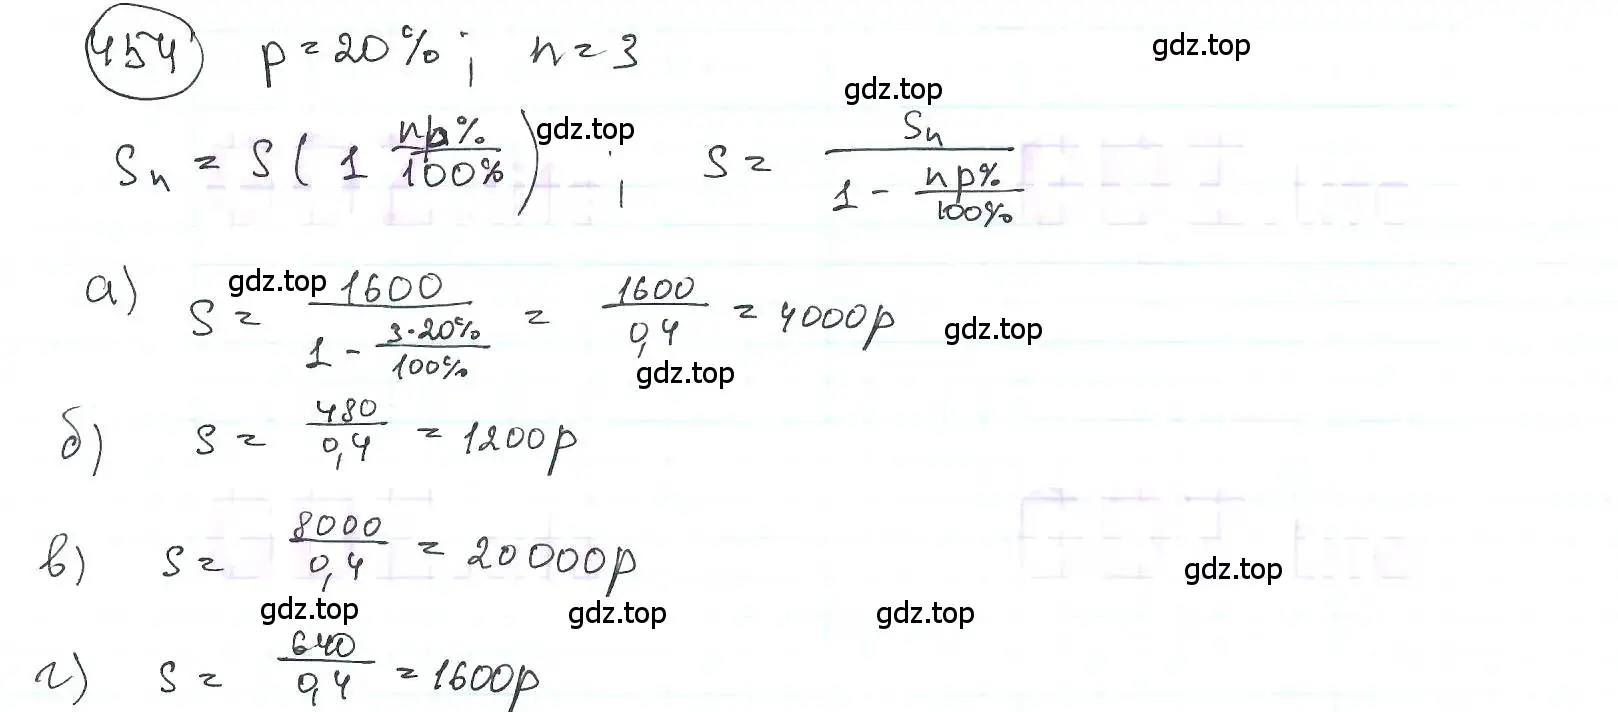 454 p = 20%; n = 3 gdz.top
gdz.top
Sn = S ( 1 np%/100% ) gdz.top ; S = Sn / (1 - np%/100%)
а) gdz.top S = 1600 / (1 - 3·20%/100%) = 1600/0,4 = 4000р gdz.top
gdz.top
б) S = 480/0,4 = 1200р
в) S = 8000/0,4 = 20000р gdz.top
gdz.top gdz.top gdz.top
г) S = 640/0,4 = 1600р